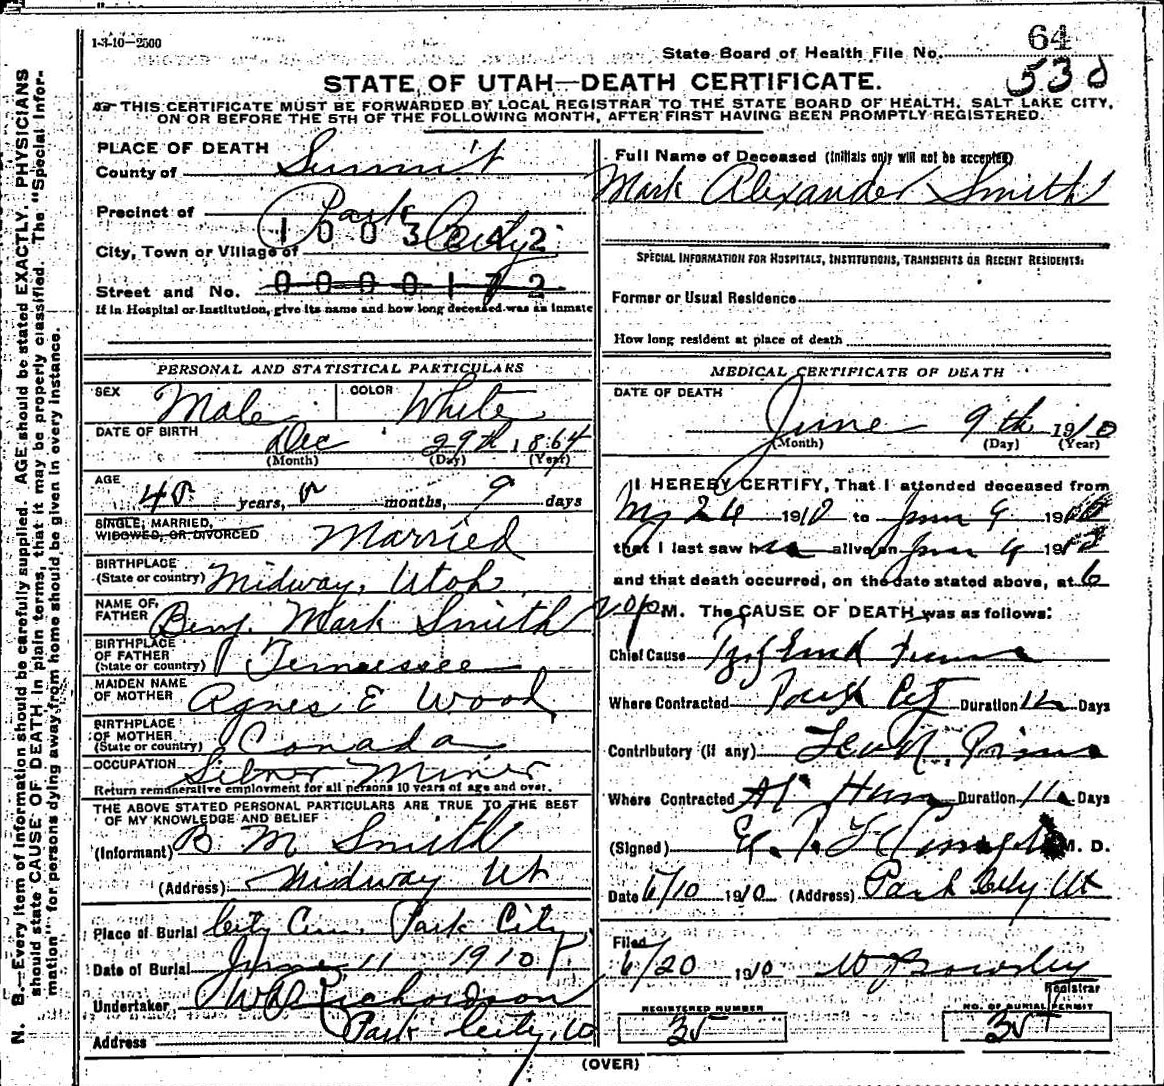 1-3-10—2500
State Board of Health File No. 64
530
STATE OF UTAH—DEATH CERTIFICATE.
THIS CERTIFICATE MUST BE FORWARDED BY LOCAL REGISTRAR TO THE STATE BOARD OF HEALTH, SALT LAKE CITY,
ON OR BEFORE THE 5TH OF THE FOLLOWING MONTH, AFTER FIRST HAVING BEEN PROMPTLY REGISTERED.
N. B.—Every item of information should be carefully supplied. AGE should be stated EXACTLY. PHYSICIANS
should state CAUSE OF DEATH in plain terms, that it may be properly classified. The "Special Infor-
mation" for persons dying away from home should be given in every instance.
PLACE OF DEATH
County of Summit
Precinct of Park City
1003242
City, Town or Village of
Street and No. 0000172
If in Hospital or Institution, give its name and how long deceased was an inmate
PERSONAL AND STATISTICAL PARTICULARS
SEX Male COLOR White
DATE OF BIRTH Dec 29th, 1864
(Month) (Day) (Year)
AGE 45 years, 5 months, 9 days
SINGLE, MARRIED,
WIDOWED, OR DIVORCED Married
BIRTHPLACE
(State or country) Midway, Utah
NAME OF
FATHER Benj. Mark Smith
BIRTHPLACE
OF FATHER
(State or country) Tennessee
MAIDEN NAME
OF MOTHER Agnes E Wood
BIRTHPLACE
OF MOTHER
(State or country) Canada
OCCUPATION Silver Miner
Return remunerative employment for all persons 10 years of age and over.
THE ABOVE STATED PERSONAL PARTICULARS ARE TRUE TO THE BEST
OF MY KNOWLEDGE AND BELIEF
(Informant) B M Smith
(Address) Midway Ut
Place of Burial City Cem. Park City
Date of Burial June 11 1910
Undertaker Richardson
Address Park City, U
Full Name of Deceased (Initials only will not be accepted)
Mark Alexander Smith
SPECIAL INFORMATION FOR HOSPITALS, INSTITUTIONS, TRANSIENTS OR RECENT RESIDENTS:
Former or Usual Residence
How long resident at place of death
MEDICAL CERTIFICATE OF DEATH
DATE OF DEATH
June 9th 1910
(Month) (Day) (Year)
I HEREBY CERTIFY, That I attended deceased from
My 26 1910 to June 9 1910
that I last saw h alive on June 9 1910
and that death occurred, on the date stated above, at 6
M. The CAUSE OF DEATH was as follows:
Chief Cause
Where Contracted Park City Duration 12 Days
Contributory (if any)
Where Contracted At Duration 11 Days
(Signed) M. D.
Date 6/10 1910 (Address) Park City Ut
Filed
6/20 1910
Registrar
REGISTERED NUMBER
35
NO. OF BURIAL PERMIT
35
(OVER)